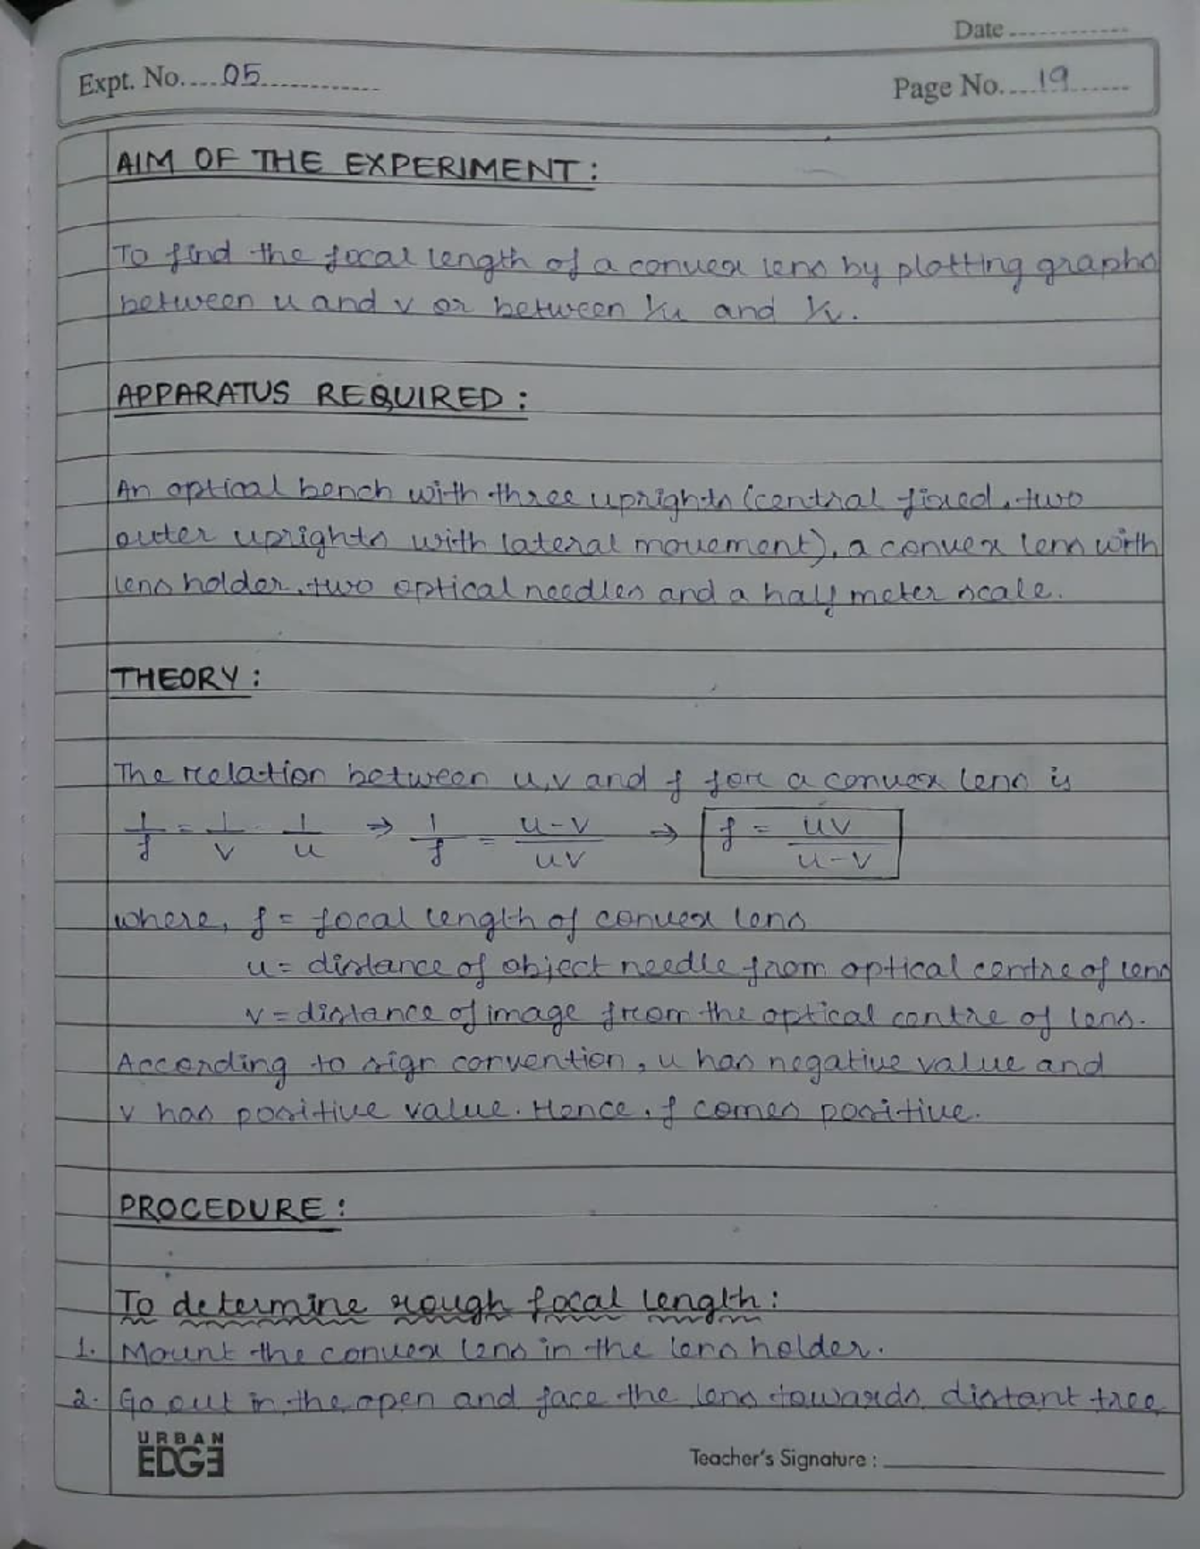 Date
Expt. No. 05
Page No. 19
AIM OF THE EXPERIMENT:
To find the focal length of a convex lens by plotting graphs
between u and v or between 1/u and 1/v.
APPARATUS REQUIRED:
An optical bench with three uprights (central fixed, two
outer uprights with lateral movement), a convex lens with
lens holder, two optical needles and a half meter scale.
THEORY:
The relation between u,v and f for a convex lens is
1/f = 1/v - 1/u ⇒ 1/f = u-v/uv ⇒ f = uv/u-v
where, f = focal length of convex lens
u = distance of object needle from optical centre of lens
v = distance of image from the optical centre of lens.
According to sign convention, u has negative value and
v has positive value. Hence, f comes positive.
PROCEDURE:
To determine rough focal length:
1. Mount the convex lens in the lens holder.
2. Go out in the open and face the lens towards distant tree
URBAN
EDGE
Teacher's Signature :